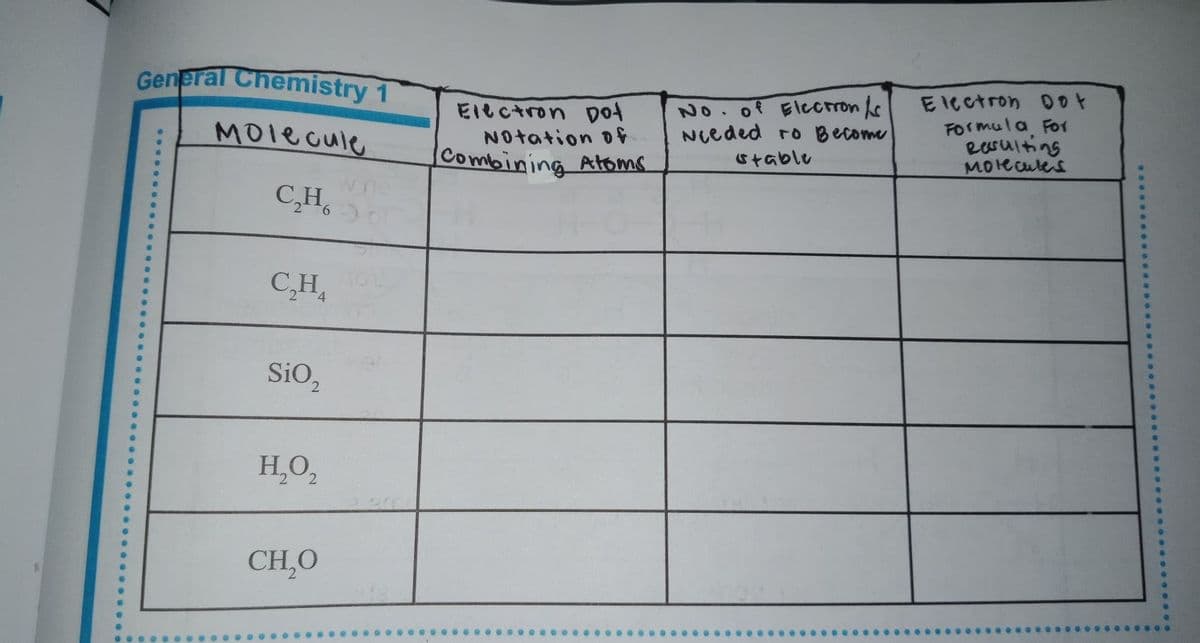 General Chemistry 1
Molecule
Electron Dot
Notation of
Combining Atoms
No. of Electron/s
Needed to Become
stable
Electron Dot
Formula For
Resulting
Molecules
C₂H₆
C₂H₄
SiO₂
H₂O₂
CH₂O